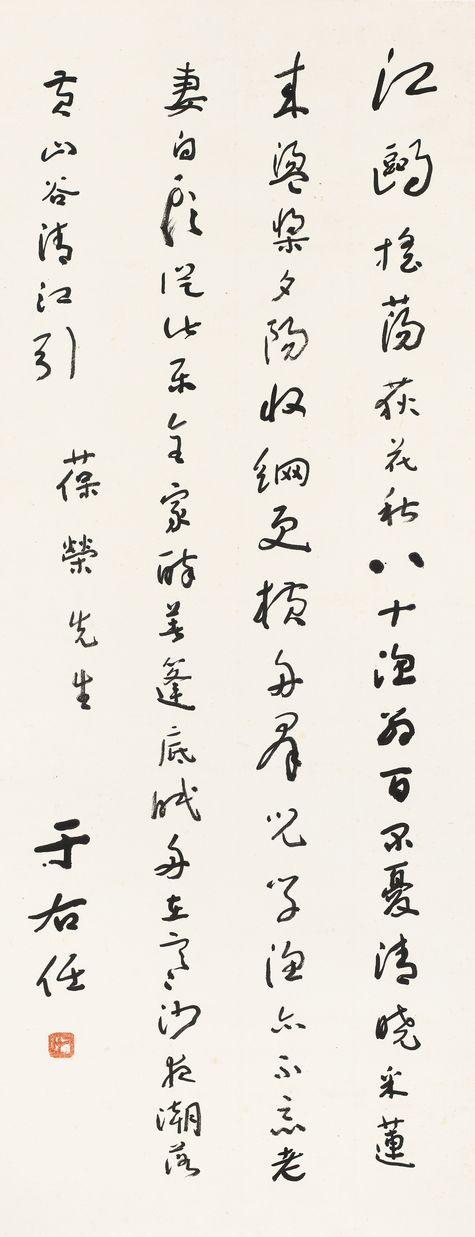 江鷗搖蕩荻花秋八十漁翁百不憂清曉采蓮
來盪槳夕陽收網更橫舟羣兒學漁亦不惡老
妻白頭從此樂全家醉著篷底眠舟在寒沙夜潮落
黃山谷清江引
葆榮先生
于右任